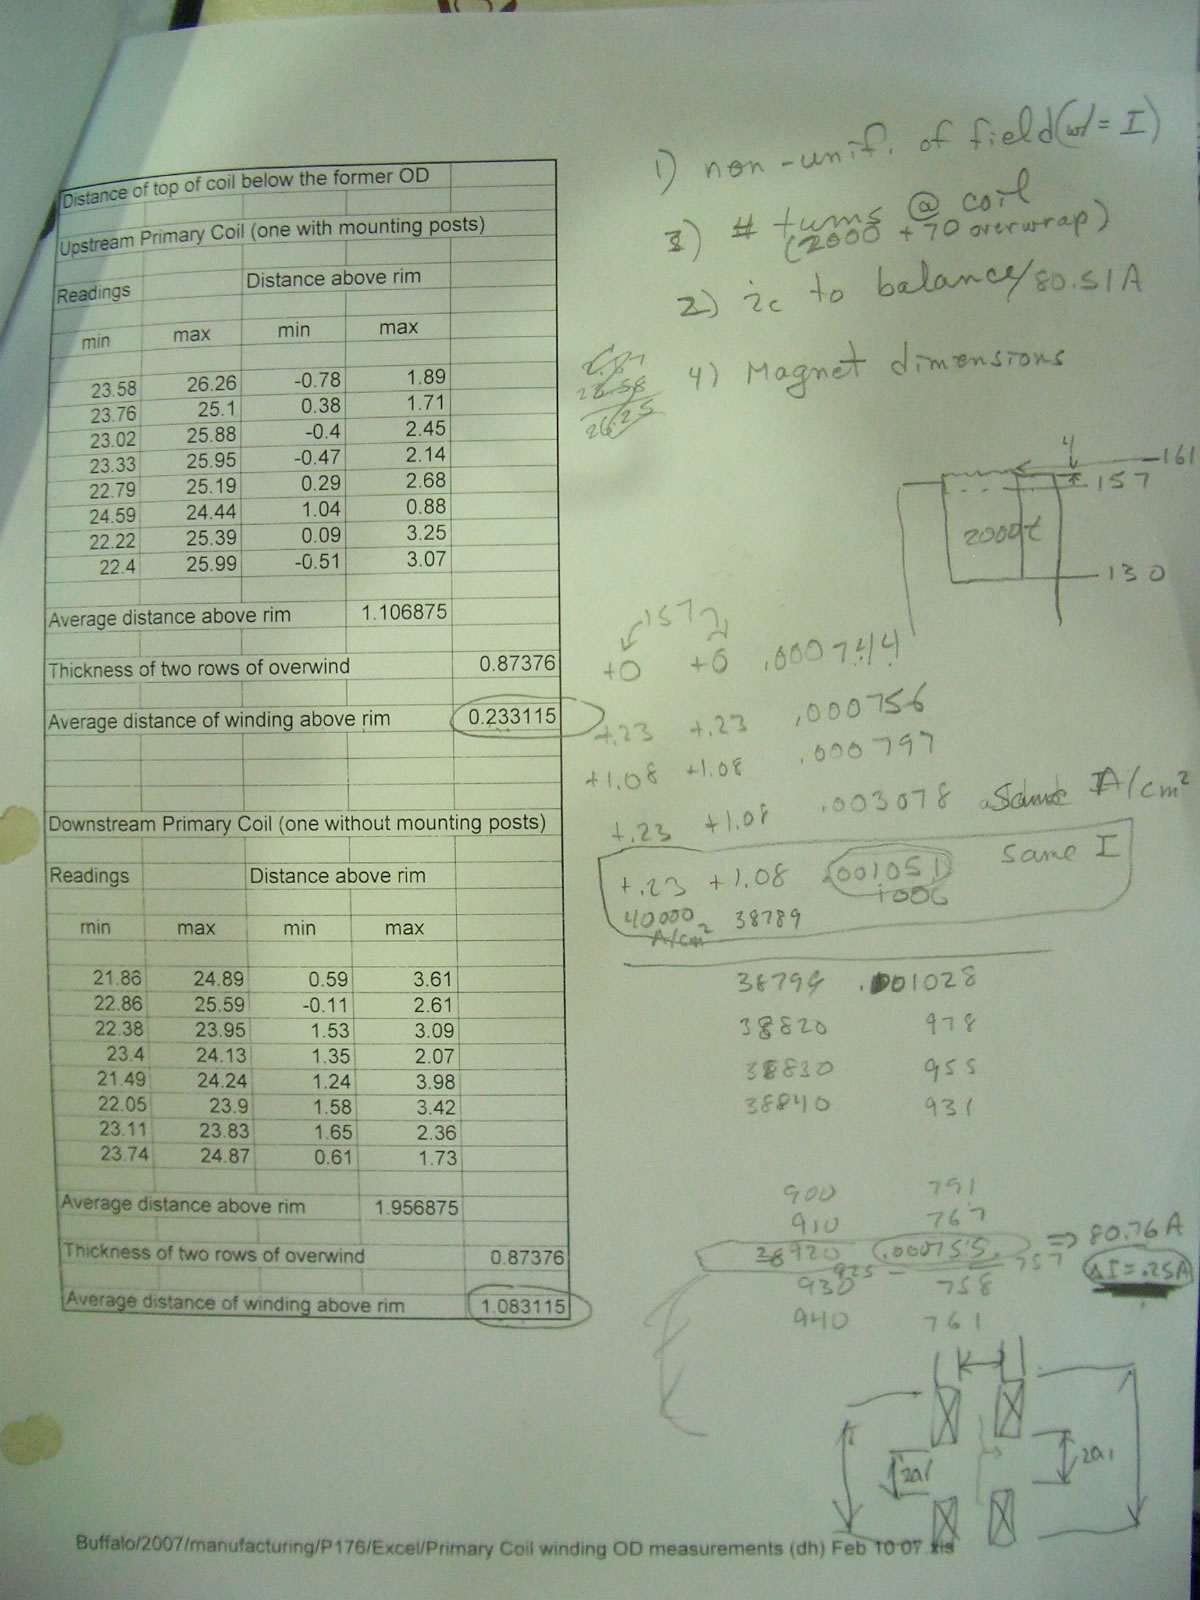 Distance of top of coil below the former OD
Upstream Primary Coil (one with mounting posts)
Readings Distance above rim
min max min max
23.58 26.26 -0.78 1.89
23.76 25.1 0.38 1.71
23.02 25.88 -0.4 2.45
23.33 25.95 -0.47 2.14
22.79 25.19 0.29 2.68
24.59 24.44 1.04 0.88
22.22 25.39 0.09 3.25
22.4 25.99 -0.51 3.07
Average distance above rim 1.106875
Thickness of two rows of overwind 0.87376
Average distance of winding above rim 0.233115
Downstream Primary Coil (one without mounting posts)
Readings Distance above rim
min max min max
21.86 24.89 0.59 3.61
22.86 25.59 -0.11 2.61
22.38 23.95 1.53 3.09
23.4 24.13 1.35 2.07
21.49 24.24 1.24 3.98
22.05 23.9 1.58 3.42
23.11 23.83 1.65 2.36
23.74 24.87 0.61 1.73
Average distance above rim 1.956875
Thickness of two rows of overwind 0.87376
Average distance of winding above rim 1.083115
1) non-unif. of field (w/ = I)
3) # turns @ coil
(2000 + 70 overwrap)
2) ic to balance/80.51A
4) Magnet dimensions
23.58
26.25
4
161
157
2000t
130
157
+0 +0 .000744
+.23 +.23 .000756
+1.08 +1.08 .000797
+.23 +1.08 .003078 same A/cm²
+.23 +1.08 .001051 same I
1006
40000 38789
A/cm²
38794 .001028
38820 978
38830 955
38840 931
900 791
910 767
38920 .000755 => 80.76 A
925 - 757
930 758 ΔI=.25A
940 761
2a1
2a1
Buffalo/2007/manufacturing/P176/Excel/Primary Coil winding OD measurements (dh) Feb 10 07 xls